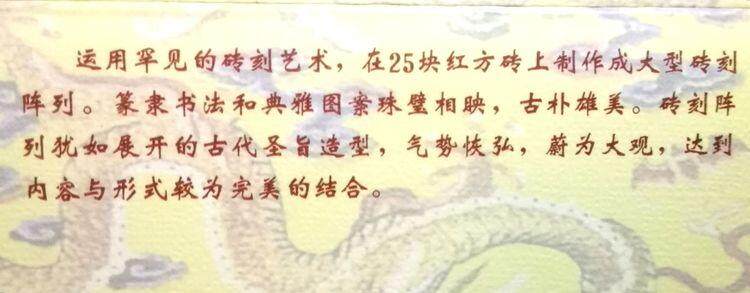 运用罕见的砖刻艺术，在25块红方砖上制作成大型砖刻
阵列。篆隶书法和典雅图案珠璧相映，古朴雄美。砖刻阵
列犹如展开的古代圣旨造型，气势恢弘，蔚为大观，达到
内容与形式较为完美的结合。